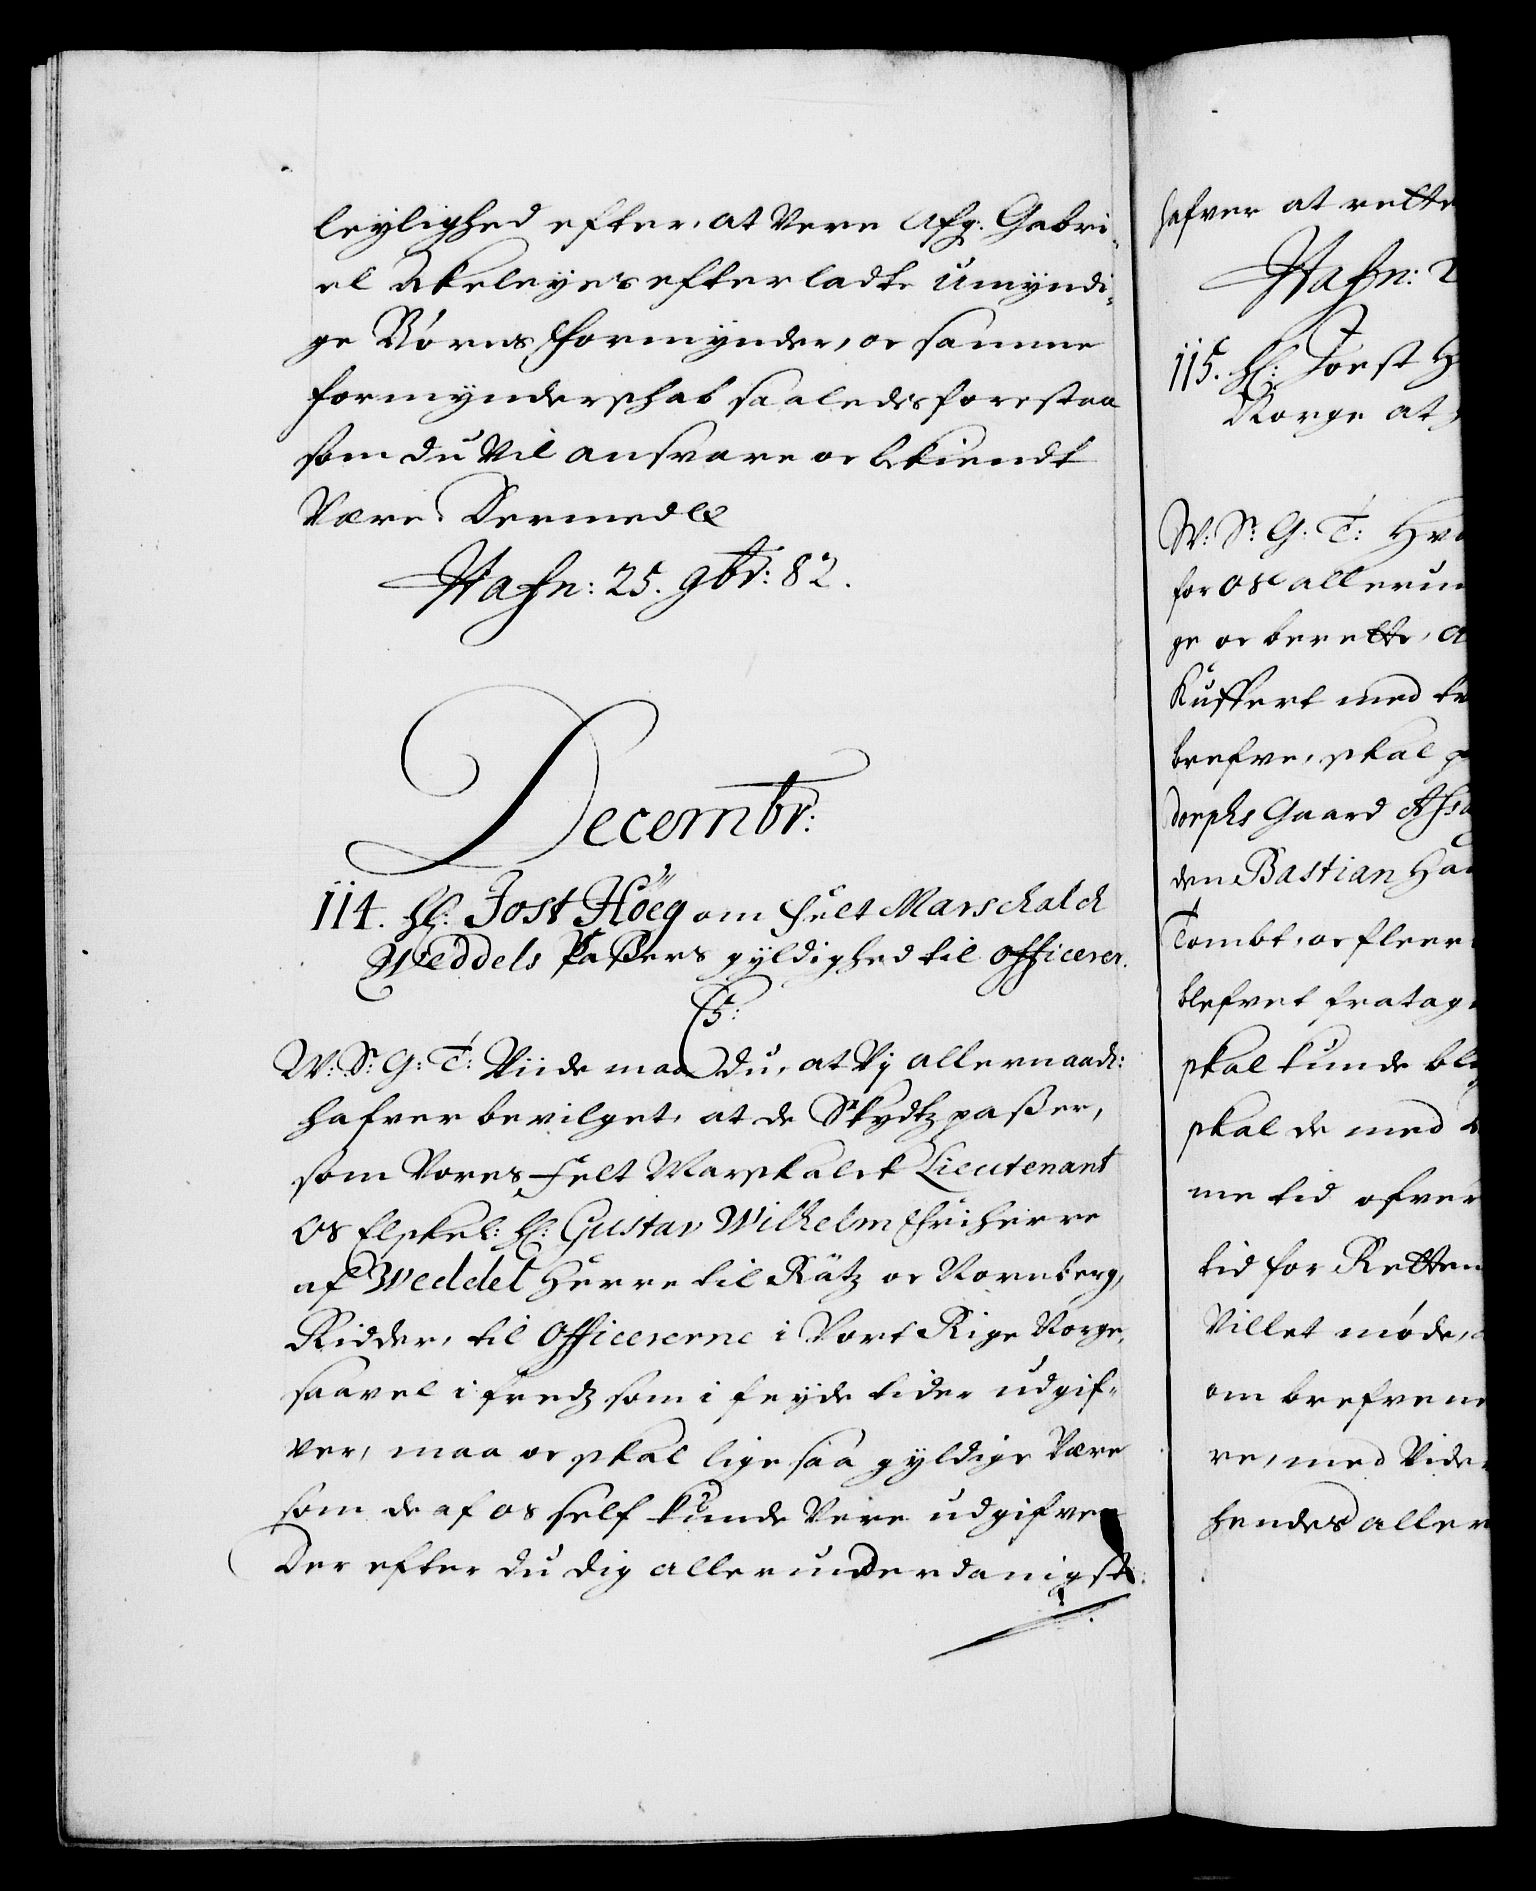 leylighed efter, at Være Afg: Gabri-
el Akeleyes efterladte umyndi-
ge Börns Formynder, oc samme
formynderschab saaledis forestaa
som du Vil ansvare oc bekiendt
Være. Dermed &c
Hafn: 25. 9br: 82.
Decembr:
114. H: Jost Höeg om Felt Marschalck
Weddels Passers gyldighed til Officerer.
C5:
W: Sr: G: T: Viide maa du, at Vj allernaadt:
hafver bevilget, at de Skydtz passer,
som Vores Felt Marskalck Lieutenant
Os Elskel: H: Gustav Wilhelm Friherre
af Weddel Herre til Rätz oc Nornberg,
Ridder, til Officererne i Vort Rige Norge,
saavel i fredz som i feyde tider udgif-
ver, maa oc skal lige saa gyldige Være
som de af os self kunde Være udgifven
Der efter du dig allerunderdanigst:
hafver at rette
Hafn: 2
115. H: Joest H
Norge at
W: Sr: G: T: Hva
for os allerun
ge oc berette, a
Kuffert med
brefve, skal
dorphs Gaard
den Bastian Han
Tombt, oc fleer
blefvet fratag
skal kunde bl
skal de med
me tid ofver
tid for Retten
Villet møde,
om brefvene
re, med Vider
hendes aller